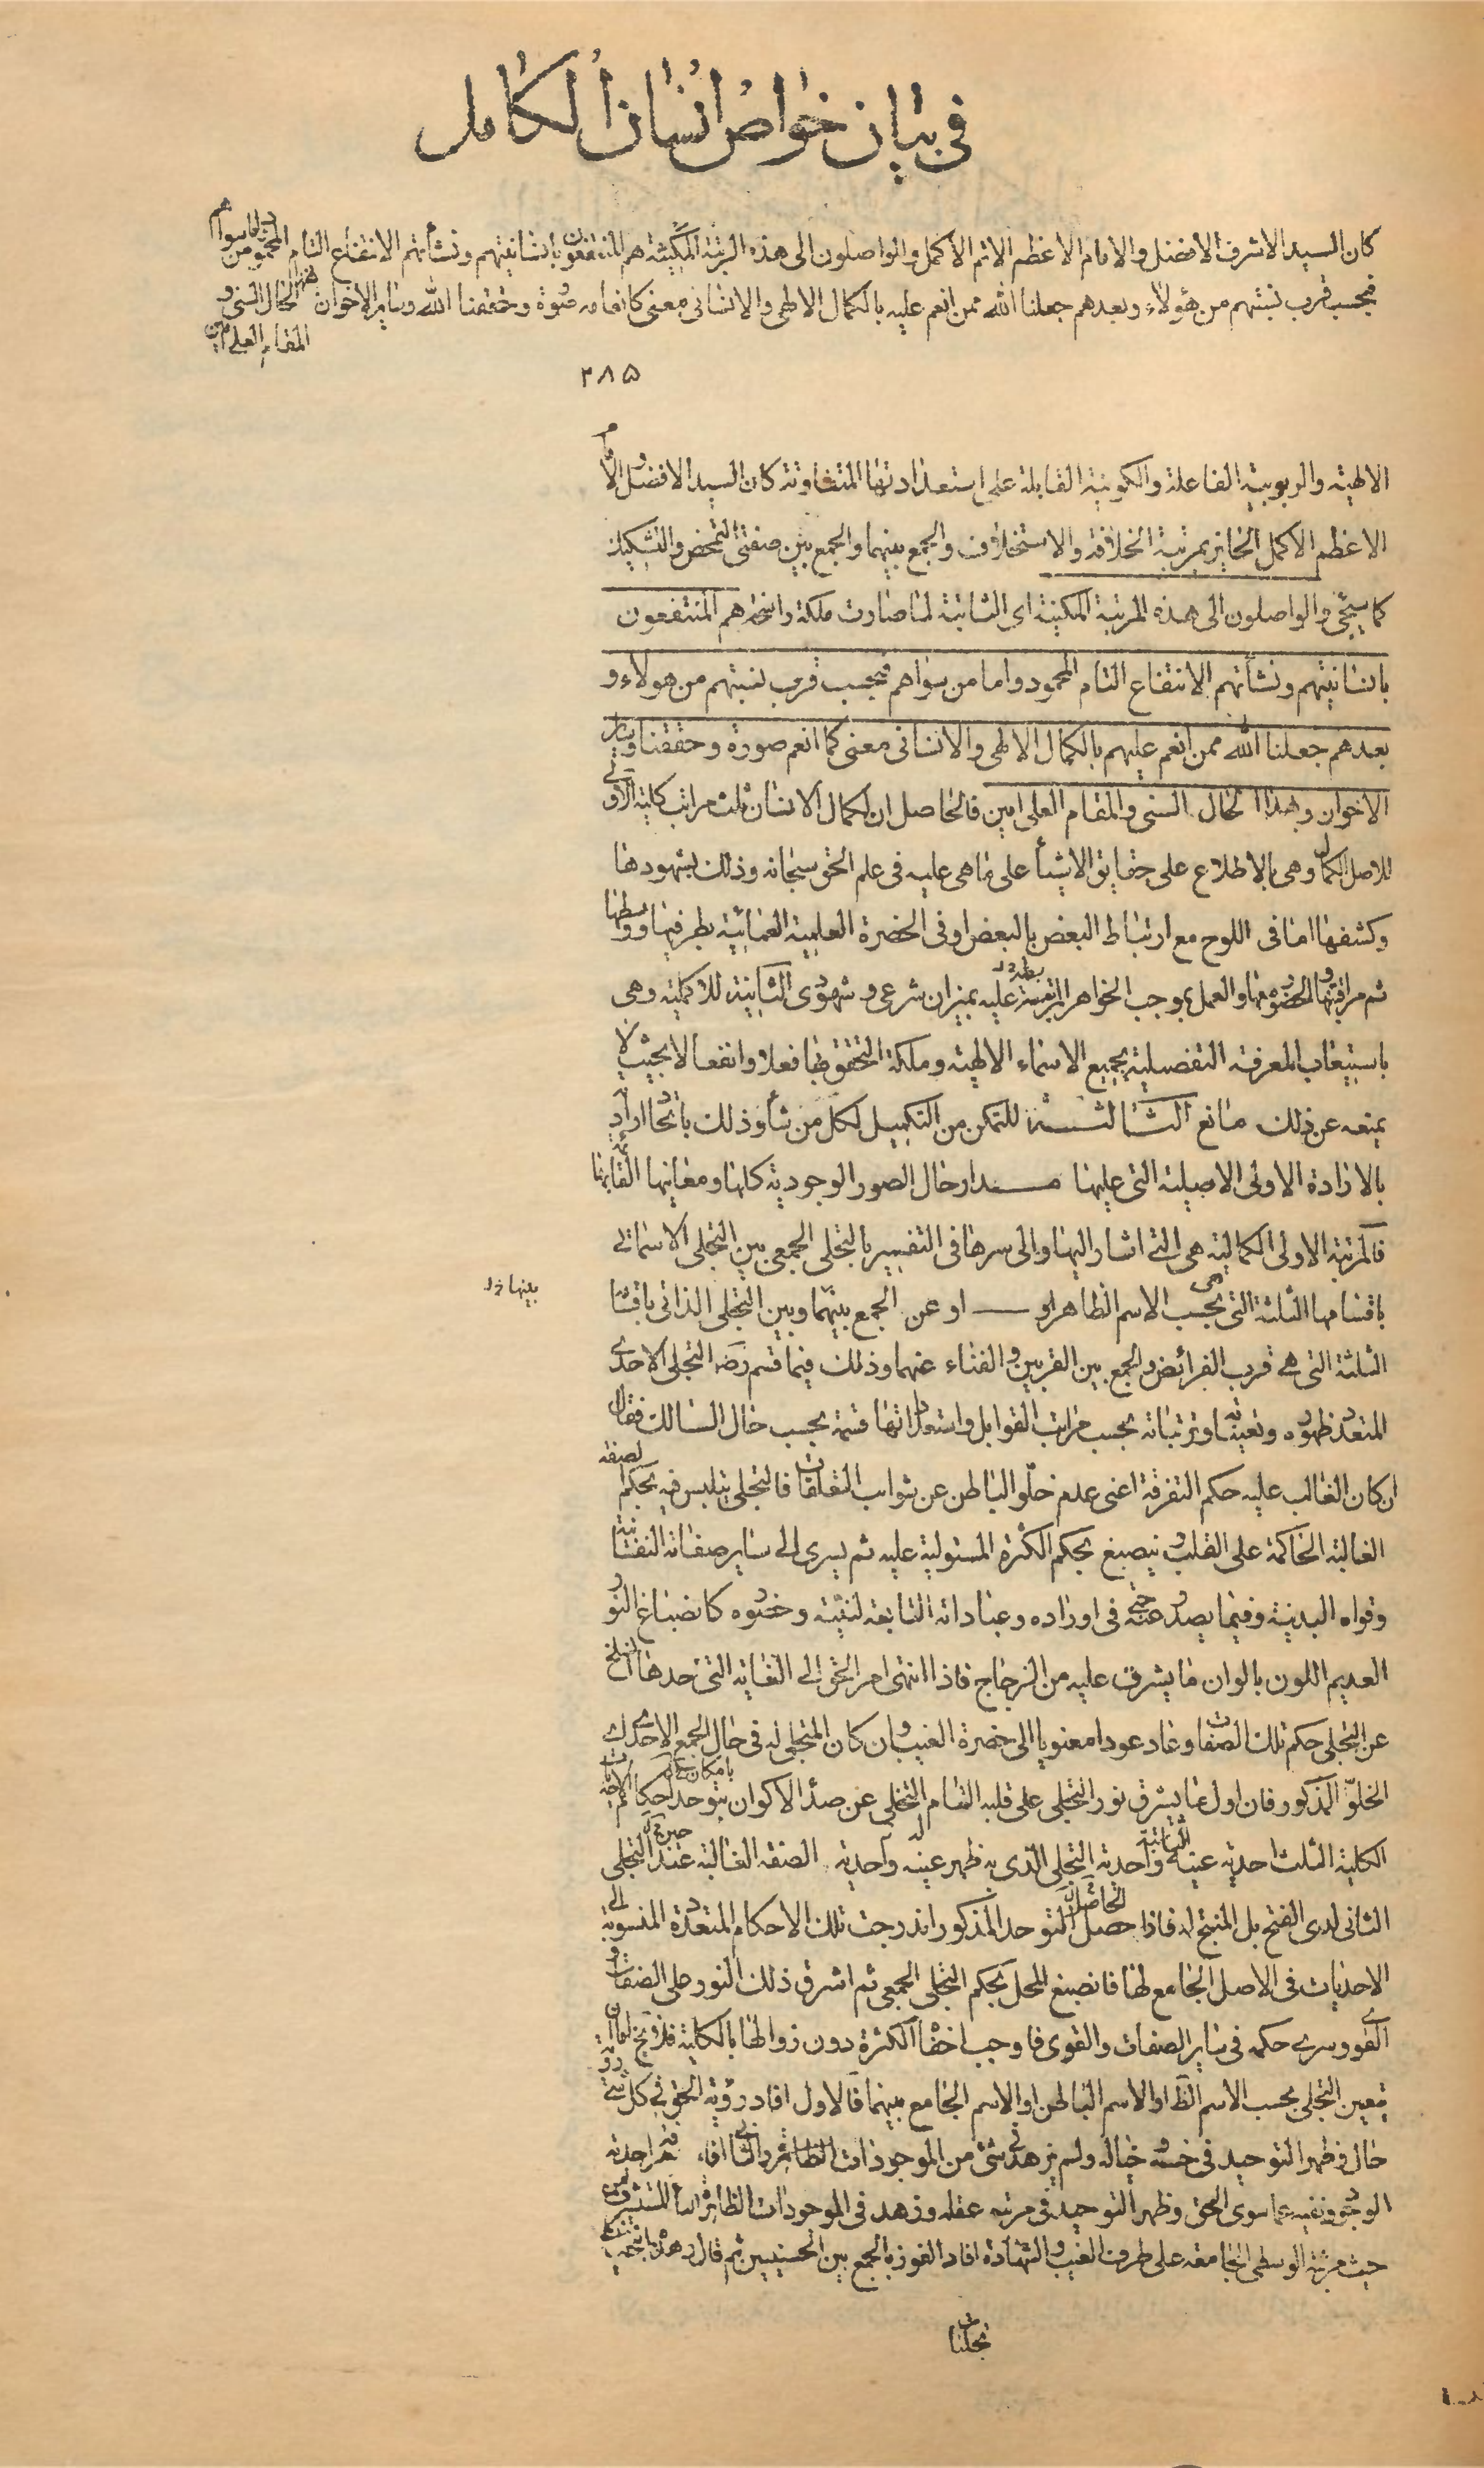 في بيان خواص انسان الكامل
كان السيد الاشرف الافضل والامام الاعظم الاتم الاكمل والواصلون الى هذه المرتبة المكنية هم المنتفعون بانسانيتهم ونشأتهم الانتفاع التام المحمود من سواهم
فبحسب قرب نسبتهم من هؤلاء وبعدهم جعلنا الله ممن انعم عليه بالكمال الالهى والانسانى معنى كما انعم صورة وحققنا الله وساير الاخوان بهذا الحال السنى و
المقام العلى امين
٢٨٥
الالهية والربوبية الفاعلة والكونية القابلة على استعداداتها المتفاوتة كان السيد الافضل والامام
الاعظم الاكمل الحايز بمرتبة الخلافة والاستخلاف والجمع بينهما والجمع بين صفتى التمحض والتشكيك
كما سيجئ والواصلون الى هذه المرتبة المكنية اى الثابتة لما صارت ملكة راسخة هم المنتفعون
بانسانيتهم ونشأتهم الانتفاع التام المحمود واما من سواهم فبحسب قرب نسبتهم من هولاء و
بعدهم جعلنا الله ممن انعم عليهم بالكمال الالهى والانسانى معنى كما انعم صورة وحققنا وساير
الاخوان وبهذا الحال السنى والمقام العلى امين فالحاصل ان لكمال الانسان ثلث مراتب كلية الاولى
للاصل الكمال وهى بالاطلاع على حقايق الاشيأ على ما هى عليه فى علم الحق سبحانه وذلك بشهودها
وكشفها اما فى اللوح مع ارتباط البعض بالبعض او فى الحضرة العلمية العمائية بطرفيها ووسطها
ثم مراقبتها والحضور معها والعمل بموجب الخواطر المرتبة عليه بميزان شرعى وشهودى الثانية للاكملية وهى
باستيعاب المعرفة التفصيلية بجميع الاسماء الالهية وملكة التحقق بها فعلا وانفعالا بحيث لا
يمنعه عن ذلك مانع الثالثة للتمكن من التكميل لكل من شأ وذلك باتحاد ارادته
بالارادة الاولى الاصلية التى عليها مدار حال الصور الوجودية كلها ومعانيها القائمة بها
فالمرتبة الاولى الكمالية هى التى اشار اليها والى سرها فى التفسير بالتجلى الجمعى بين التجلى الاسمائى
باقسامها الثلثة التى هى بحسب الاسم الظاهر او — او عن الجمع بينهما وبين التجلى الذاتى باقسامه
بينها خ‌د
الثلثة التى هى قرب الفرائض والجمع بين القربين والفناء عنهما وذلك فيما قسم رضه التجلى الاحدى
المتعدد ظهوره وتعيناته وترتباته بحسب مراتب القوابل واستعداداتها قسمة بحسب حال السالك فقال
ان كان الغالب عليه حكم التفرقة اعنى عدم خلو الباطن عن شوايب التعلقات فالتجلى يتلبس فيه بحكم الصفة
الغالبة الحاكمة على القلب وينصبغ بحكم الكثرة المستولية عليه ثم يسرى الى ساير صفاته النفسانية
وقواه البدنية وفيما يصدر عنه حتى فى اوراده وعباداته التابعة لنيته وحضوره كانصباغ النور
العديم اللون بالوان ما يشرق عليه من الزجاج فاذا انتهى امر الحق الى الغاية التى حدها انسلخ
عن التجلى حكم تلك الصفات وعاد عودا معنويا الى حضرة الغيب وان كان المتجلى له فى حال الجمع الاحدى
الخلو المذكور فان اول ما يشرق نور التجلى على قلبه التام التخلى عن صدأ الاكوان يتوحد احكام الاحديات
الكلية الثلث احدية عينه الثابتة واحدية التجلى الذى به ظهر عينه واحدية الصفة الغالبة عند التجلى
الثانى لدى الفتح بل المنتج له فاذا حصل التوحد المذكور اندرجت تلك الاحكام المتعددة المنسوبة الى
الاحديات فى الاصل الجامع لها فانصبغ المحل بحكم التجلى الجمعى ثم اشرق ذلك النور على الصفات و
القوى وسرى حكمه فى ساير الصفات والقوى فاوجب اخفأ الكثرة دون زوالها بالكلية فلا يخ اما ان
يتعين التجلى بحسب الاسم الظ او الاسم الباطن او الاسم الجامع بينهما فالاول افاد رؤية الحق فى كل شئ
حال فظهر التوحيد فى حسه وخياله ولم يزهد فى شئ من الموجودات الظاهر والثانى افاد احدية
الوجود ونفيه عما سوى الحق وظهر التوحيد فى مرتبة عقله وزهد فى الموجودات الظاهرة
حيث مرتبة الوسطى الجامعة على طرفى الغيب والشهادة افاد الفوز بالجمع بين الحسنيين ثم قال رضه
تجليات